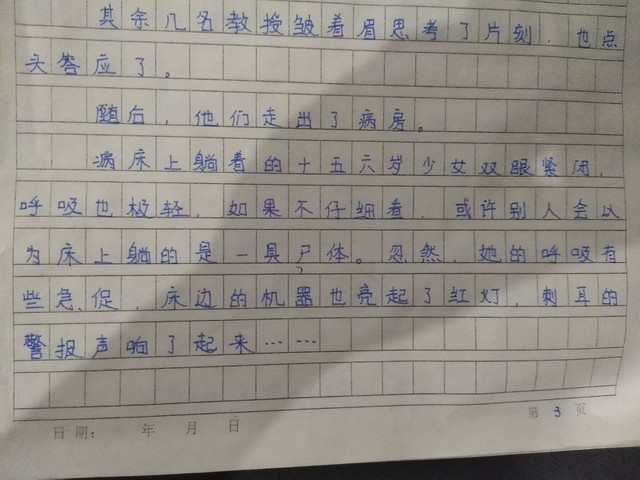 其余几名教授皱着眉思考了片刻，也点
头答应了。
随后，他们走出了病房。
病床上躺着的十五六岁少女双眼紧闭，
呼吸也极轻，如果不仔细看，或许别人会以
为床上躺的是一具尸体。忽然，她的呼吸有
些急促，床边的机器也亮起了红灯，刺耳的
警报声响了起来……
第 3 页
日期： 年 月 日